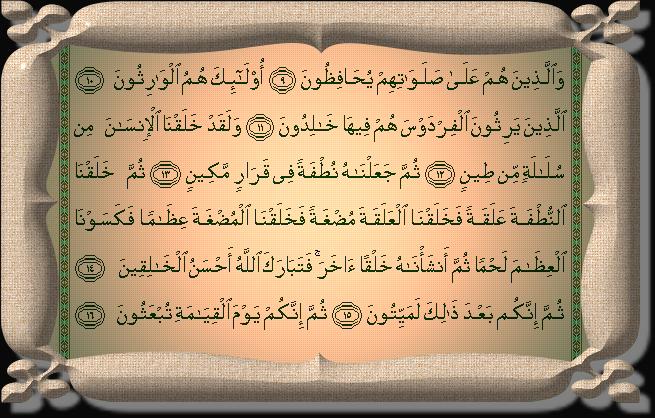 وَٱلَّذِينَ هُمْ عَلَىٰ صَلَوَٰتِهِمْ يُحَافِظُونَ ۝٩ أُوْلَـٰٓئِكَ هُمُ ٱلْوَٰرِثُونَ ۝١٠
ٱلَّذِينَ يَرِثُونَ ٱلْفِرْدَوْسَ هُمْ فِيهَا خَـٰلِدُونَ ۝١١ وَلَقَدْ خَلَقْنَا ٱلْإِنسَـٰنَ مِن
سُلَـٰلَةٍ مِّن طِينٍ ۝١٢ ثُمَّ جَعَلْنَـٰهُ نُطْفَةً فِى قَرَارٍ مَّكِينٍ ۝١٣ ثُمَّ خَلَقْنَا
ٱلنُّطْفَةَ عَلَقَةً فَخَلَقْنَا ٱلْعَلَقَةَ مُضْغَةً فَخَلَقْنَا ٱلْمُضْغَةَ عِظَـٰمًا فَكَسَوْنَا
ٱلْعِظَـٰمَ لَحْمًا ثُمَّ أَنشَأْنَـٰهُ خَلْقًا ءَاخَرَ ۚ فَتَبَارَكَ ٱللَّهُ أَحْسَنُ ٱلْخَـٰلِقِينَ ۝١٤
ثُمَّ إِنَّكُم بَعْدَ ذَٰلِكَ لَمَيِّتُونَ ۝١٥ ثُمَّ إِنَّكُمْ يَوْمَ ٱلْقِيَـٰمَةِ تُبْعَثُونَ ۝١٦